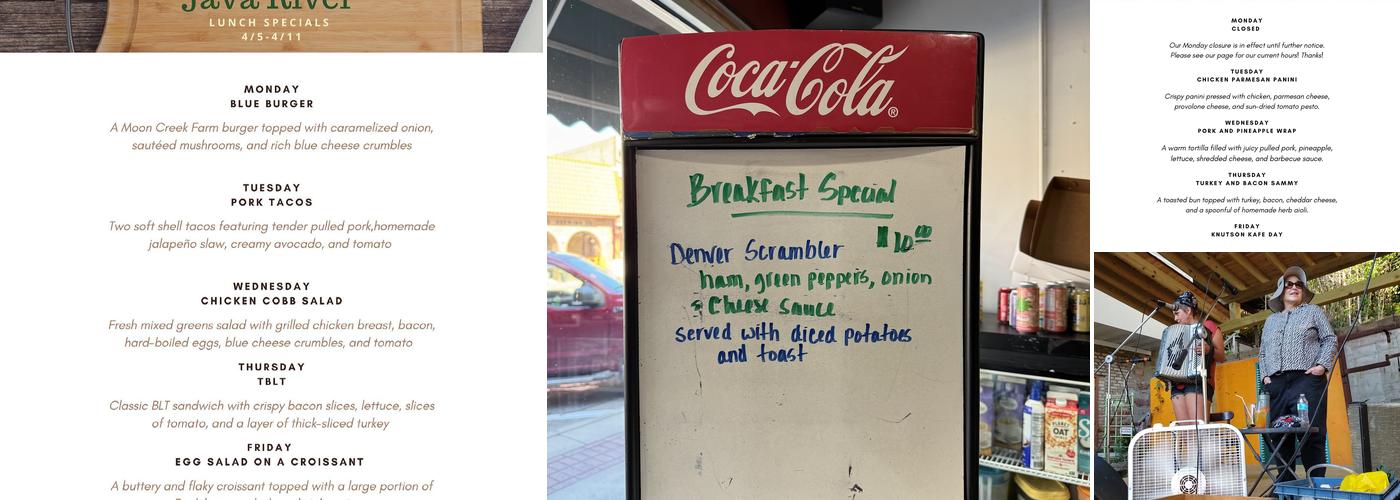 Java River
LUNCH SPECIALS
4/5-4/11
MONDAY
BLUE BURGER
A Moon Creek Farm burger topped with caramelized onion,
sautéed mushrooms, and rich blue cheese crumbles
TUESDAY
PORK TACOS
Two soft shell tacos featuring tender pulled pork,homemade
jalapeño slaw, creamy avocado, and tomato
WEDNESDAY
CHICKEN COBB SALAD
Fresh mixed greens salad with grilled chicken breast, bacon,
hard-boiled eggs, blue cheese crumbles, and tomato
THURSDAY
TBLT
Classic BLT sandwich with crispy bacon slices, lettuce, slices
of tomato, and a layer of thick-sliced turkey
FRIDAY
EGG SALAD ON A CROISSANT
A buttery and flaky croissant topped with a large portion of
Coca-Cola®
Breakfast Special
$10.00
Denver Scrambler
ham, green peppers, onion
& Cheese sauce
served with diced potatoes
and toast
OAT
MONDAY
CLOSED
Our Monday closure is in effect until further notice.
Please see our page for our current hours! Thanks!
TUESDAY
CHICKEN PARMESAN PANINI
Crispy panini pressed with chicken, parmesan cheese,
provolone cheese, and sun-dried tomato pesto.
WEDNESDAY
PORK AND PINEAPPLE WRAP
A warm tortilla filled with juicy pulled pork, pineapple,
lettuce, shredded cheese, and barbecue sauce.
THURSDAY
TURKEY AND BACON SAMMY
A toasted bun topped with turkey, bacon, cheddar cheese,
and a spoonful of homemade herb aioli.
FRIDAY
KNUTSON KAFE DAY